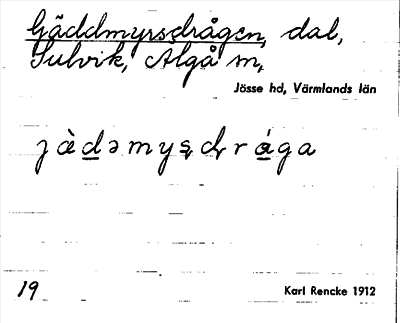 Gäddmyrsdrågen, dal,
Sulvik, Älgå sn,
Jösse hd, Värmlands län
jàdəmyṣḍrága
19
Karl Rencke 1912